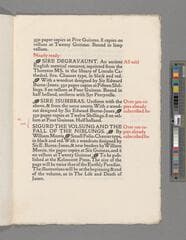 350 paper copies at Five Guineas. 8 copies on
vellum at Twenty Guineas. Bound in limp
vellum.
Nearly ready.
SIRE DEGRAVAUNT. An ancient All sold
English metrical romance, reprinted from the
Thornton MS. in the library of Lincoln Cathe-
dral. 8vo. Chaucer type, in black and red.
With a woodcut designed by Sir Edward
Burne-Jones. 350 paper copies at Fifteen Shillings,
8 on vellum at Four Guineas. Bound in
half holland, uniform with Syr Perecyvelle.
SIRE ISUMBRAS. Uniform with the Over 300 co-
above, & from the same source. With a wood- pies already
cut designed by Sir Edward Burne-Jones. 350 subscribed for.
paper copies at Twelve Shillings. 8 on vellum
at Four Guineas. Half holland.
SIGURD THE VOLSUNG AND THE Over 100 co-
FALL OF THE NIBLUNGS. By pies already
William Morris. Small folio. Chaucer type, subscribed for.
in black and red. With a woodcut designed by
Sir E. Burne-Jones, & new borders by William
Morris. 160 paper copies at Six Guineas, and 6
vellum at Twenty Guineas. To be pub-
lished at the Kelmscott Press. The size of the
page will be twice that of the Earthly Paradise.
The illustrations will be at the beginning & end
of the volume, as in The Life and Death of
Jason.